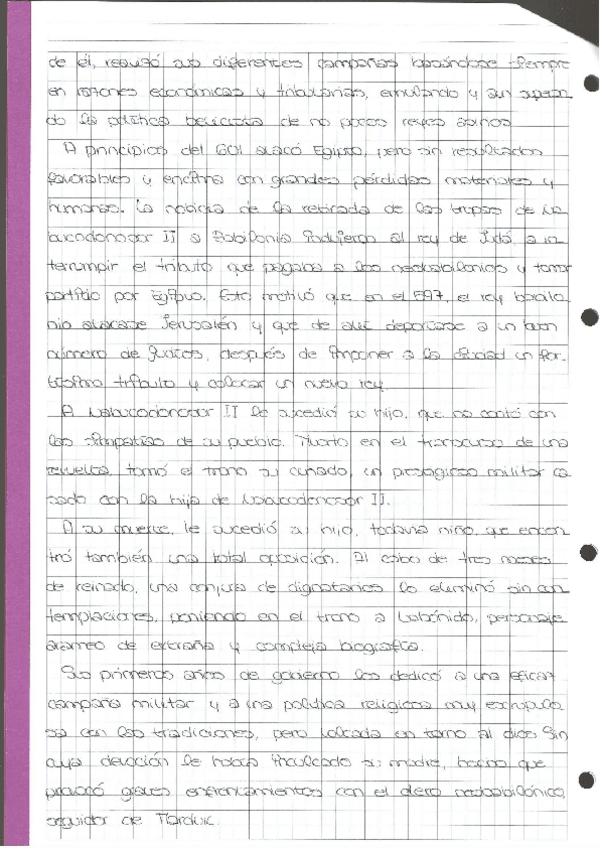 de él, realizó sus diferentes campañas basándose siempre
en razones económicas y tributarias, emulando y aun superan
do la política belicista de no pocos reyes asirios.
A principios del 601 atacó Egipto, pero sin resultados
favorables y encima con grandes pérdidas materiales y
humanas. La noticia de la retirada de las tropas de Na
bucodonosor II a Babilonia indujeron al rey de Judá a in
terrumpir el tributo que pagaba a los neobabilonios y tomar
partido por Egipto. Esto motivó que en el 597, el rey babilo
nio atacase Jerusalén y que de allí deportase a un buen
número de judíos, después de imponer a la ciudad un for-
tísimo tributo y colocar un nuevo rey.
A Nabucodonosor II le sucedió su hijo, que no contó con
las simpatías de su pueblo. Muerto en el transcurso de una
revuelta, tomó el trono su cuñado, un prestigioso militar ca
sado con la hija de Nabucodonosor II.
A su muerte, le sucedió su hijo, todavía niño, que encon
tró también una total oposición. Al cabo de tres meses
de reinado, una conjura de dignatarios lo eliminó sin con
templaciones, poniendo en el trono a Nabónido, personaje
arameo de extraña y compleja biografía.
Sus primeros años de gobierno los dedicó a una eficaz
campaña militar y a una política religiosa muy escrupulo
sa con las tradiciones, pero volcada en torno al dios Sin
cuya devoción le había inculcado su madre, hecho que
provocó graves enfrentamientos con el clero neobabilónico,
seguidor de Marduk.